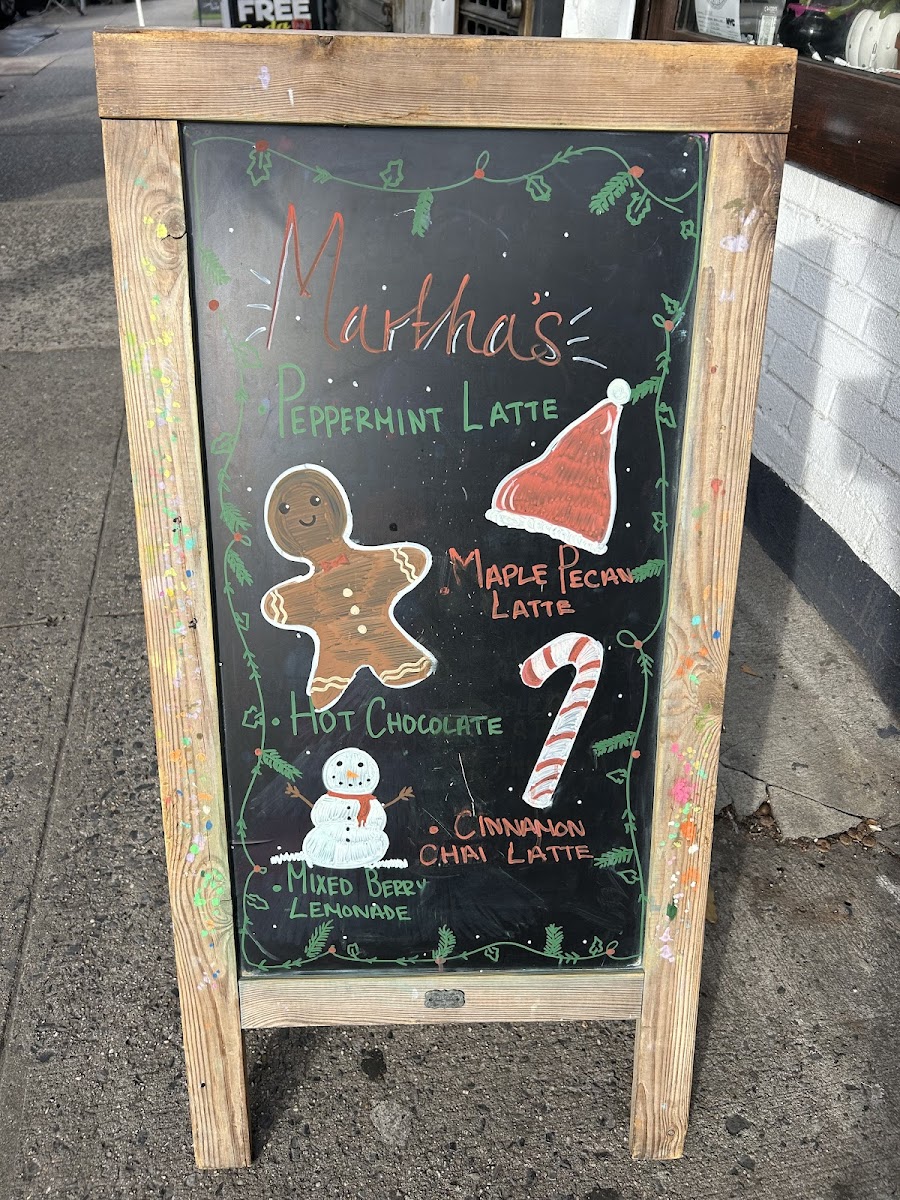 FREE
Martha's
PEPPERMINT LATTE
• MAPLE PECAN
LATTE
• HOT CHOCOLATE
• CINNAMON
CHAI LATTE
• MIXED BERRY
LEMONADE